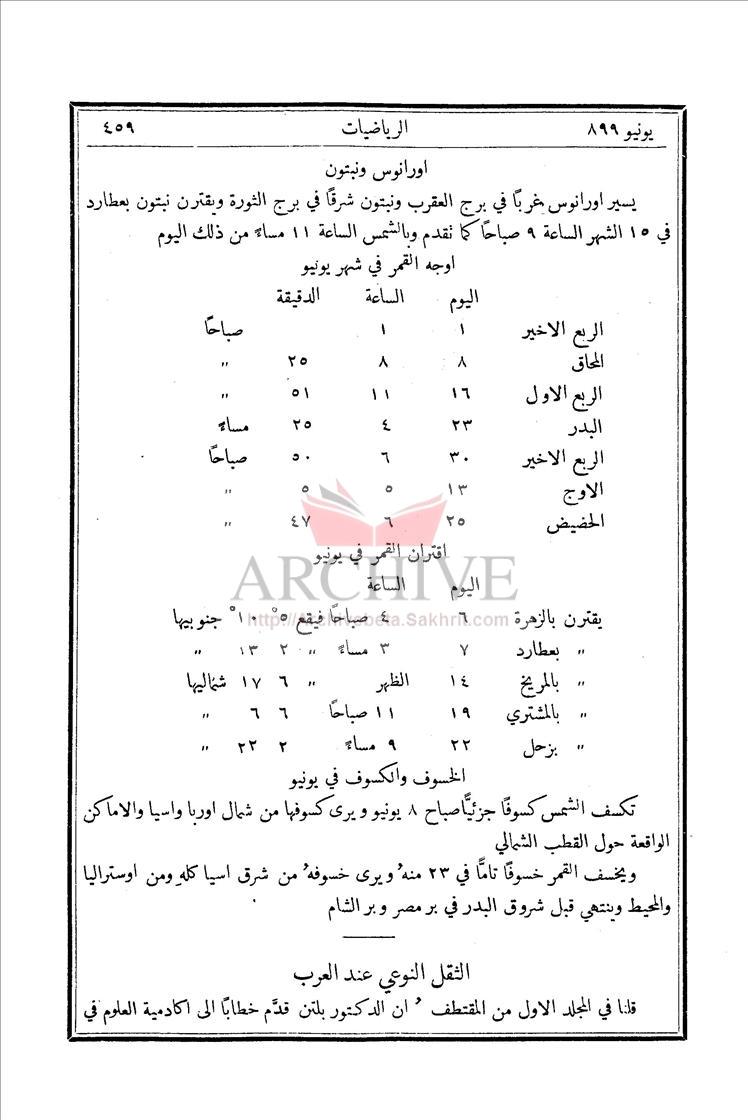 يونيو ٨٩٩ الرياضيات ٤٥٩
اورانوس ونبتون
يسير اورانوس غربًا في برج العقرب ونبتون شرقًا في برج الثورة ويقترن نبتون بعطارد
في ١٥ الشهر الساعة ٩ صباحًا كما تقدم وبالشمس الساعة ١١ مساءً من ذلك اليوم
اوجه القمر في شهر يونيو
اليوم الساعة الدقيقة
الربع الاخير ١ ١ صباحًا
المحاق ٨ ٨ ٢٥ „
الربع الاول ١٦ ١١ ٥١ „
البدر ٢٣ ٤ ٢٥ مساءً
الربع الاخير ٣٠ ٦ ٥٠ صباحًا
الاوج ١٣ ٥ ٥ „
الحضيض ٢٥ ٦ ٤٧ „
اقتران القمر في يونيو
ARCHIVE
اليوم الساعة
يقترن بالزهرة ٦ ٤ صباحًا فيقع ٥° ١٠° جنوبيها
http://Archivebeta.Sakhrit.com
„ بعطارد ٧ ٣ مساءً „ ٢ ١٣ „
„ بالمريخ ١٤ الظهر „ ٦ ١٧ شماليها
„ بالمشتري ١٩ ١١ صباحًا ٦ ٦ „
„ بزحل ٢٢ ٩ مساءً ٢ ٢٢ „
الخسوف والكسوف في يونيو
تكسف الشمس كسوفًا جزئيًّا صباح ٨ يونيو ويرى كسوفها من شمال اوربا واسيا والاماكن
الواقعة حول القطب الشمالي
ويخسف القمر خسوفًا تامًّا في ٢٣ منهُ ويرى خسوفهُ من شرق اسيا كلهِ ومن اوستراليا
والمحيط وينتهي قبل شروق البدر في بر مصر وبر الشام
الثقل النوعي عند العرب
قلنا في المجلد الاول من المقتطف ُ ان الدكتور بلتن قدَّم خطابًا الى اكادمية العلوم في